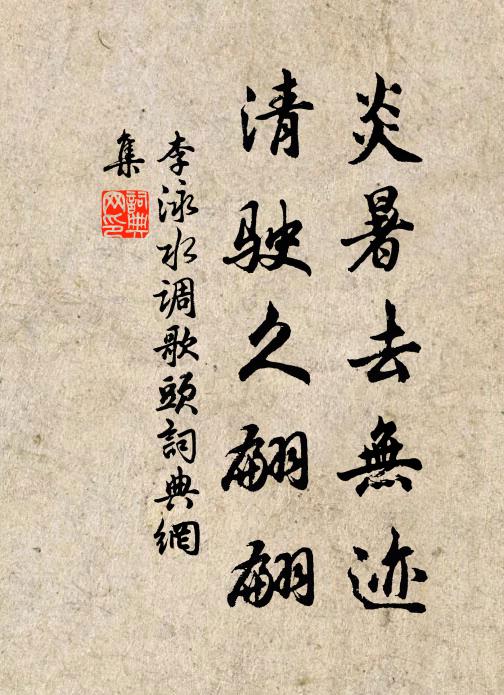 炎暑去無迹
清駛久翩翩
李泳水调歌頭詞典網
集
詞典网印